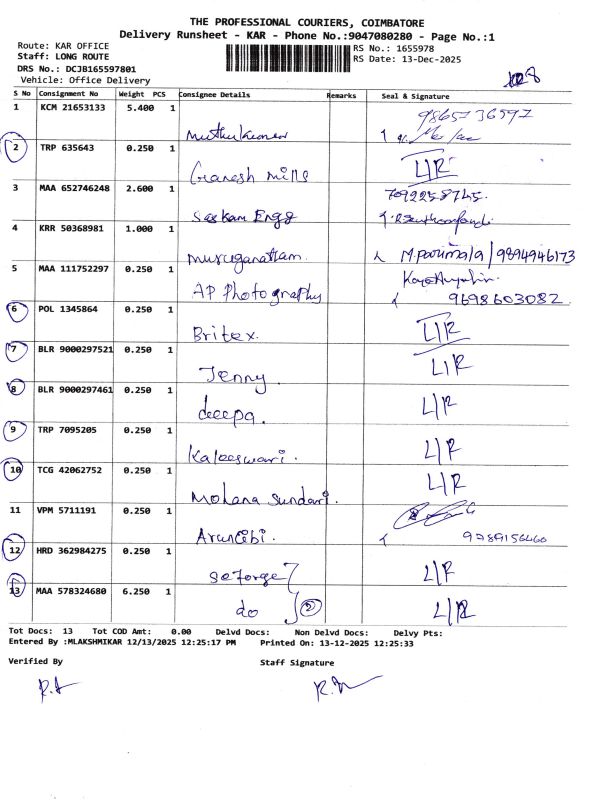 THE PROFESSIONAL COURIERS, COIMBATORE
Delivery Runsheet - KAR - Phone No.:9047080280 - Page No.:1
Route: KAR OFFICE
Staff: LONG ROUTE
DRS No.: DCJB165597801
Vehicle: Office Delivery
RS No.: 1655978
RS Date: 13-Dec-2025
S No Consignment No Weight PCS Consignee Details Remarks Seal & Signature
1 KCM 21653133 5.400 1 Muthukumar 9865736597
2 TRP 635643 0.250 1 Ganesh mills L/R
3 MAA 652746248 2.600 1 Saskam Engg 7092258745
4 KRR 50368981 1.000 1 Muruganatham. M.parimala/9894946173
5 MAA 111752297 0.250 1 AP Photography 9698603082
6 POL 1345864 0.250 1 Britex. L/R
7 BLR 9000297521 0.250 1 Jenny. L/R
8 BLR 9000297461 0.250 1 deepa. L/R
9 TRP 7095205 0.250 1 Kaleeswari. L/R
10 TCG 42062752 0.250 1 Mohana Sundari. L/R
11 VPM 5711191 0.250 1 9789156460
12 HRD 362984275 0.250 1 Seforge L/R
13 MAA 578324680 6.250 1 do 2 L/R
Tot Docs: 13 Tot COD Amt: 0.00 Delvd Docs: Non Delvd Docs: Delvy Pts:
Entered By :MLAKSHMIKAR 12/13/2025 12:25:17 PM Printed On: 13-12-2025 12:25:33
Verified By Staff Signature